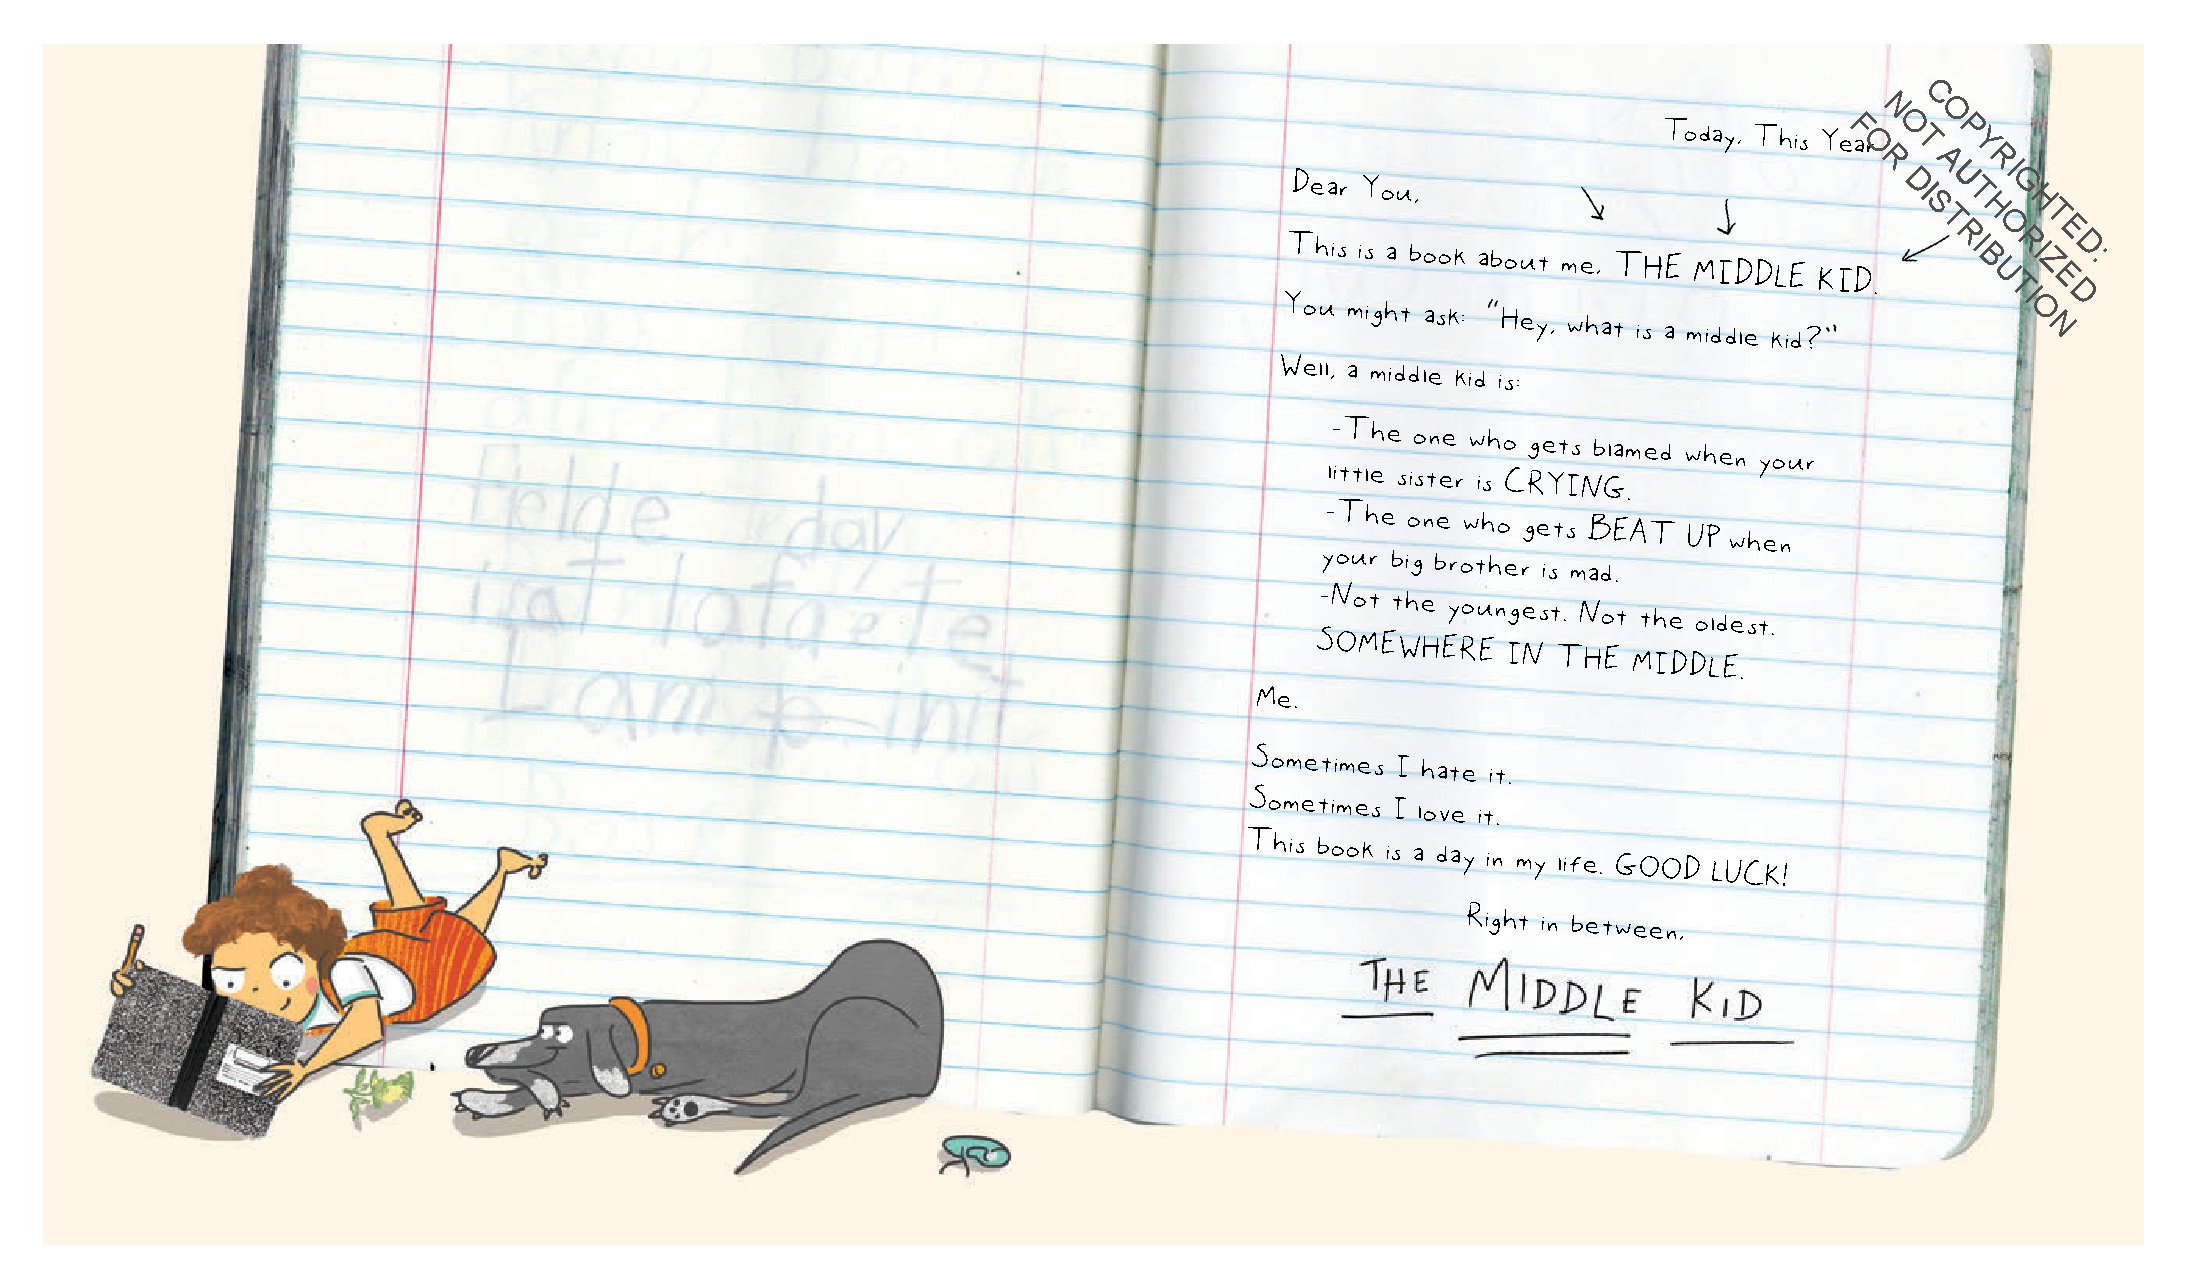 Today, This Year
COPYRIGHTED:
NOT AUTHORIZED
FOR DISTRIBUTION
Dear You,
This is a book about me, THE MIDDLE KID.
You might ask: "Hey, what is a middle kid?"
Well, a middle kid is:
-The one who gets blamed when your
little sister is CRYING.
-The one who gets BEAT UP when
your big brother is mad.
-Not the youngest. Not the oldest.
SOMEWHERE IN THE MIDDLE.
Me.
Sometimes I hate it.
Sometimes I love it.
This book is a day in my life. GOOD LUCK!
Right in between,
THE MIDDLE KID